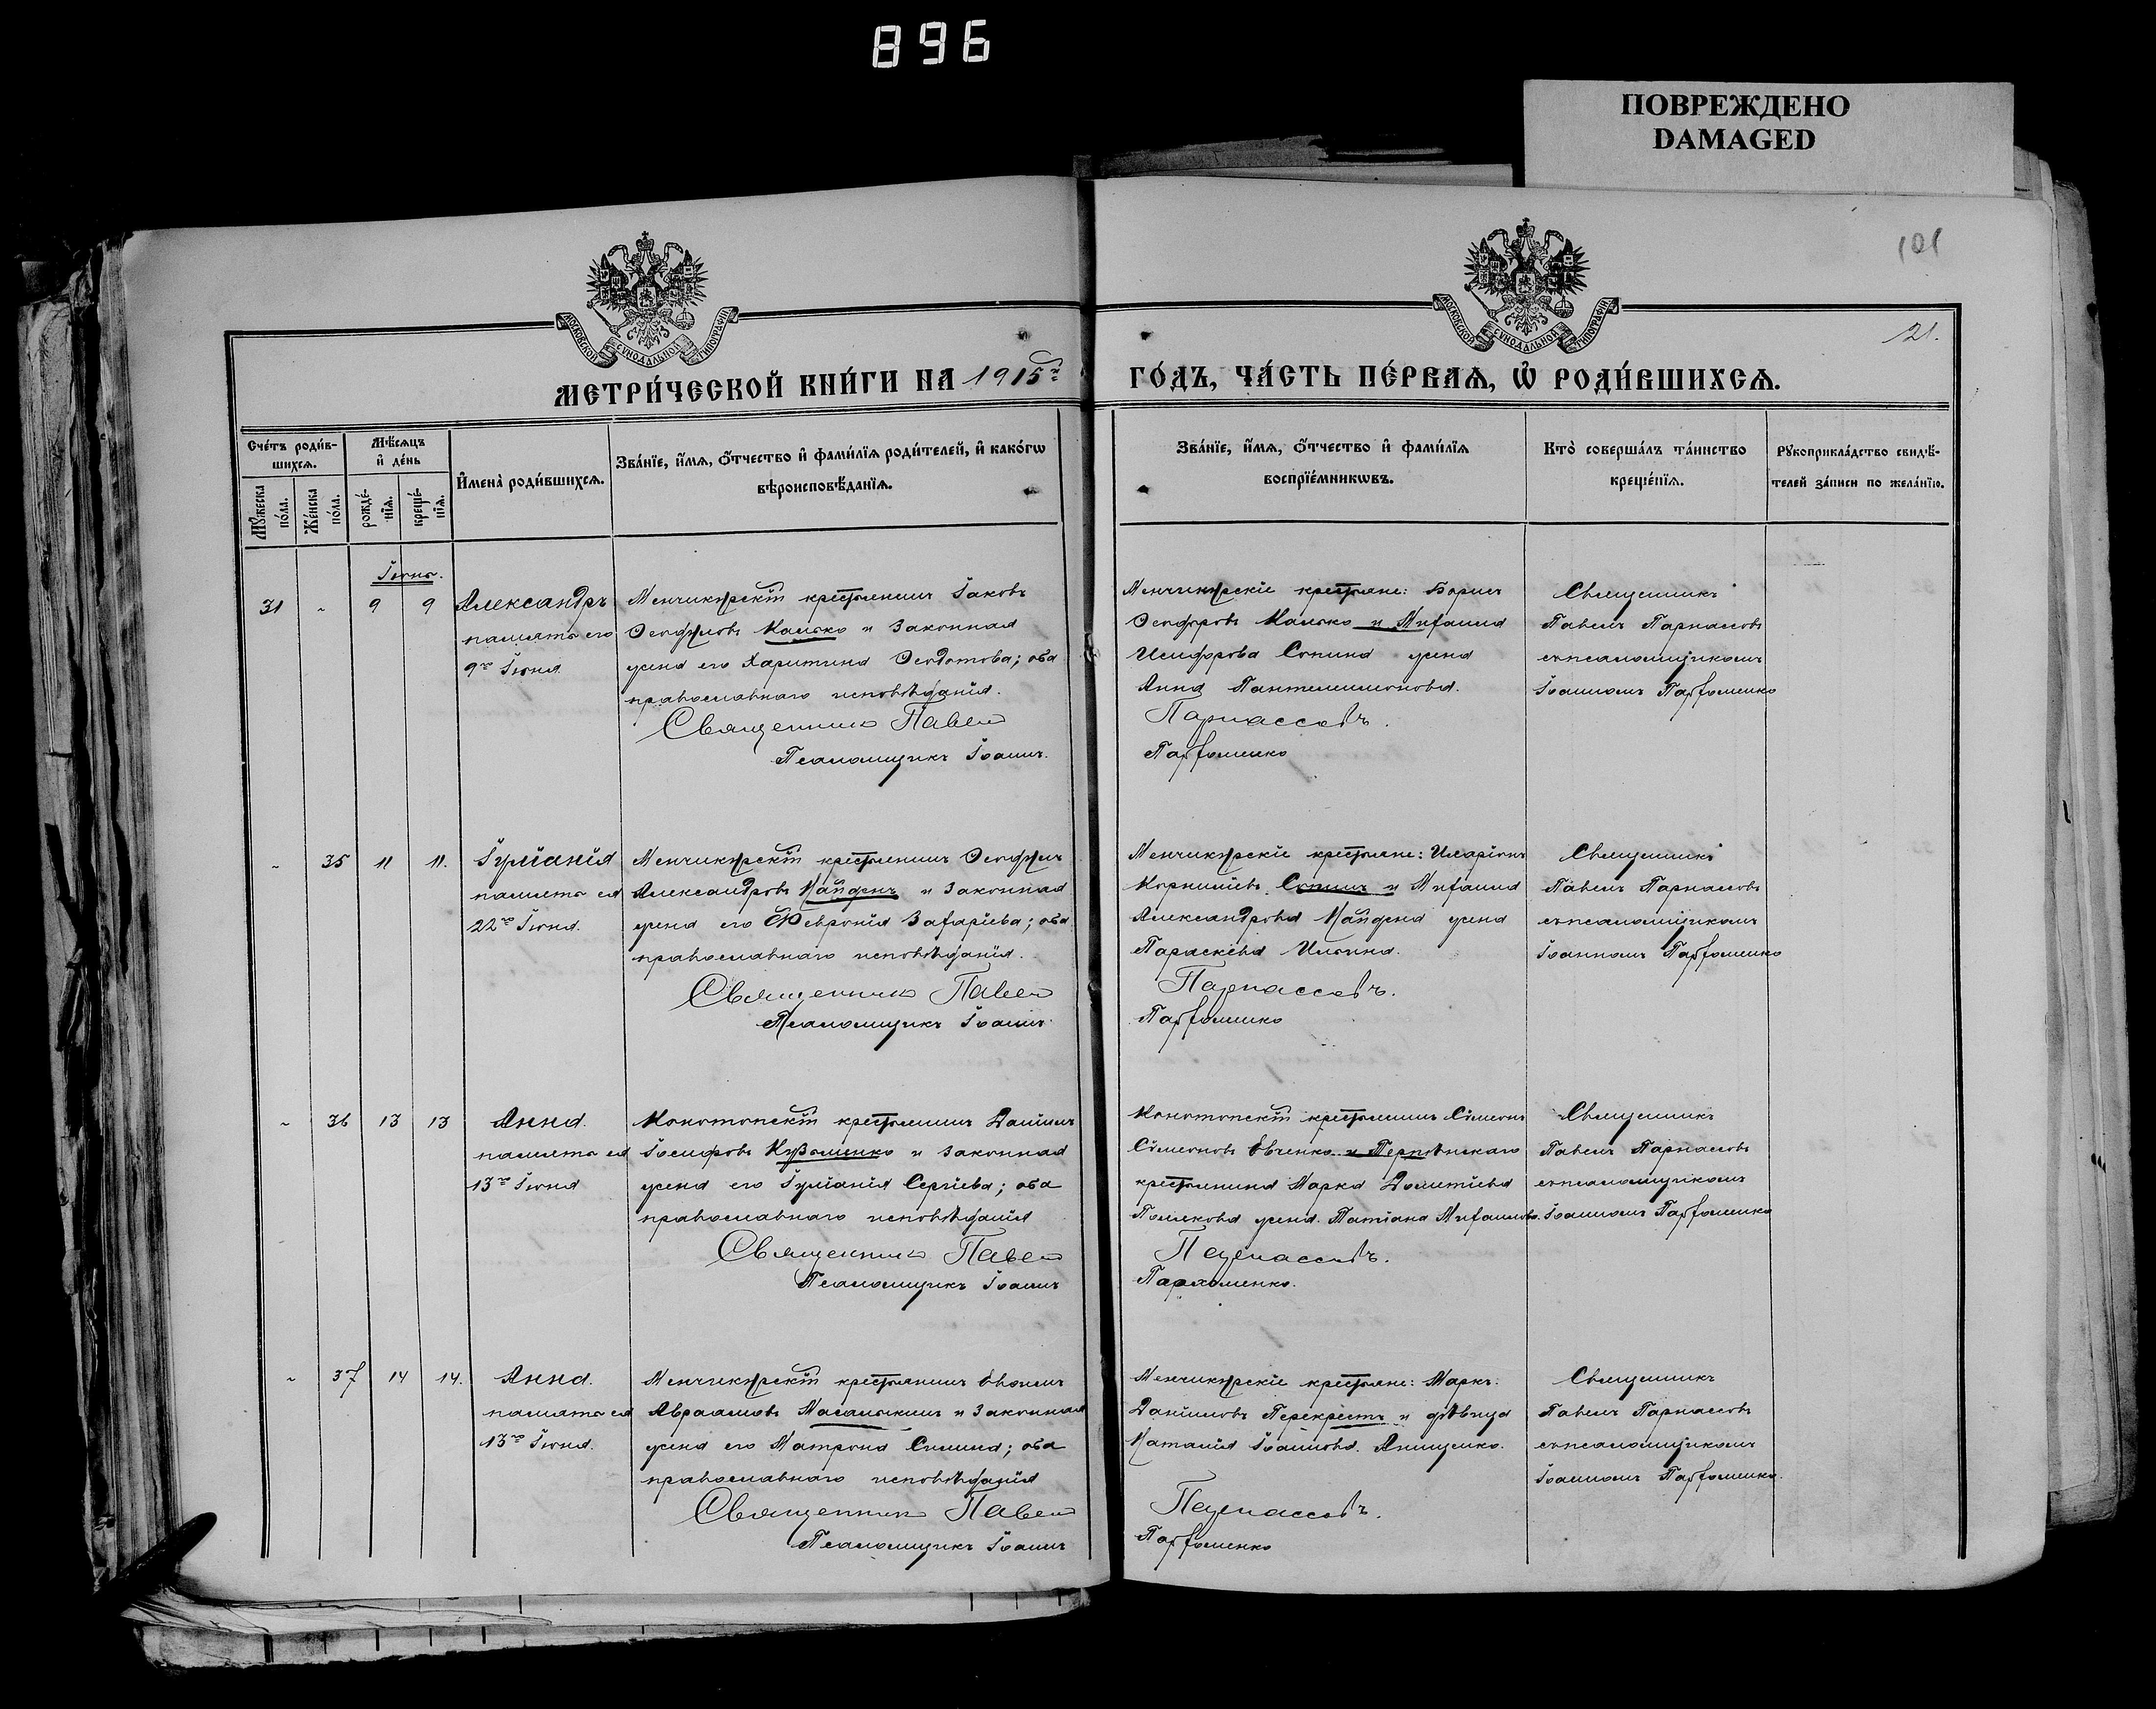 896
ПОВРЕЖДЕНО
DAMAGED
101
21.
МОСКОВСКОЙ СѴНОДАЛЬНОЙ ТИПОГРАФІИ
МОСКОВСКОЙ СѴНОДАЛЬНОЙ ТИПОГРАФІИ
МЕТРИ́ЧЕСКОЙ КНИ́ГИ НА 1915й
ГО́ДЪ, ЧА́СТЬ ПЕ́РВАѦ, Ѽ РОДИ́ВШИХСѦ.
Сче́тъ роди́в-
шихсѧ.
Мꙋ́жеска по́ла.
Же́нска по́ла.
Мѣ́сѧцъ
и҆ де́нь
рожде́-
нїѧ.
креще́-
нїѧ.
И҆мена̀ роди́вшихсѧ.
Зва́нїе, и҆́мѧ, ѻ҆́тчество и҆ фами́лїѧ роди́телей, и҆ како́гѡ
вѣроисповѣ́данїѧ.
Зва́нїе, и҆́мѧ, ѻ҆́тчество и҆ фами́лїѧ
воспрїе́мникѡвъ.
Кто̀ соверша́лъ та́инство
креще́нїѧ.
Рꙋкоприкла́дство свидѣ́-
телей за́писи по жела́нїю.
Іюнь.
31 " 9 9 Александръ
память его
9го Іюня
Менчикурскій крестьянинъ Іаковъ
Ѳеофиловъ Калько и законная
жена его Харитина Ѳеодотова; оба
православнаго исповѣданія.
Священникъ Павелъ
Псаломщикъ Іоаннъ.
Менчикурскіе крестьяне: Борисъ
Калько и Михаила
Исидорова Сопина жена
Анна Пантелеимонова.
Парнассовъ.
Пархоменко
Священникъ
Павелъ Парнассовъ
съ псаломщикомъ
Іоанномъ Пархоменко
" 35 11 11. Іуліанія
память ея
22го Іюня.
Менчикурскій крестьянинъ Ѳеофилъ
Александровъ Найденъ и законная
жена его Февронія Захаріева; оба
православнаго исповѣданія.
Священникъ Павелъ
Псаломщикъ Іоаннъ.
Менчикурскіе крестьяне: Иларіонъ
Корниліевъ Сопинъ и Михаила
Александрова Найдена жена
Параскева Ильина.
Парнассовъ.
Пархоменко
Священникъ
Павелъ Парнассовъ
съ псаломщикомъ
Іоанномъ Пархоменко
" 36 13 13 Анна.
память ея
13го Іюня
Конотопскій крестьянинъ Даніилъ
Іосифовъ Кузьменко и законная
жена его Іуліанія Сергіева; оба
православнаго исповѣданія
Священникъ Павелъ
Псаломщикъ Іоаннъ
Конотопскій крестьянинъ Сѵмеонъ
Сѵмеоновъ Евченко и Терпѣнскаго
крестьянина Марка Дометіева
Полякова жена Татіана Михаилова.
Парнассовъ.
Пархоменко.
Священникъ
Павелъ Парнассовъ
съ псаломщикомъ
Іоанномъ Пархоменко
" 37 14 14. Анна.
память ея
13го Іюня.
Менчикурскій крестьянинъ
Авраамовъ и законная
жена его Матрона оба
православнаго исповѣданія
Священникъ Павелъ
Псаломщикъ Іоаннъ
Менчикурскіе крестьяне: Маркъ
Даніиловъ Перекрестъ и дѣвица
Наталія Іоаннова Анищенко.
Парнассовъ.
Пархоменко
Священникъ
Павелъ Парнассовъ
съ псаломщикомъ
Іоанномъ Пархоменко.